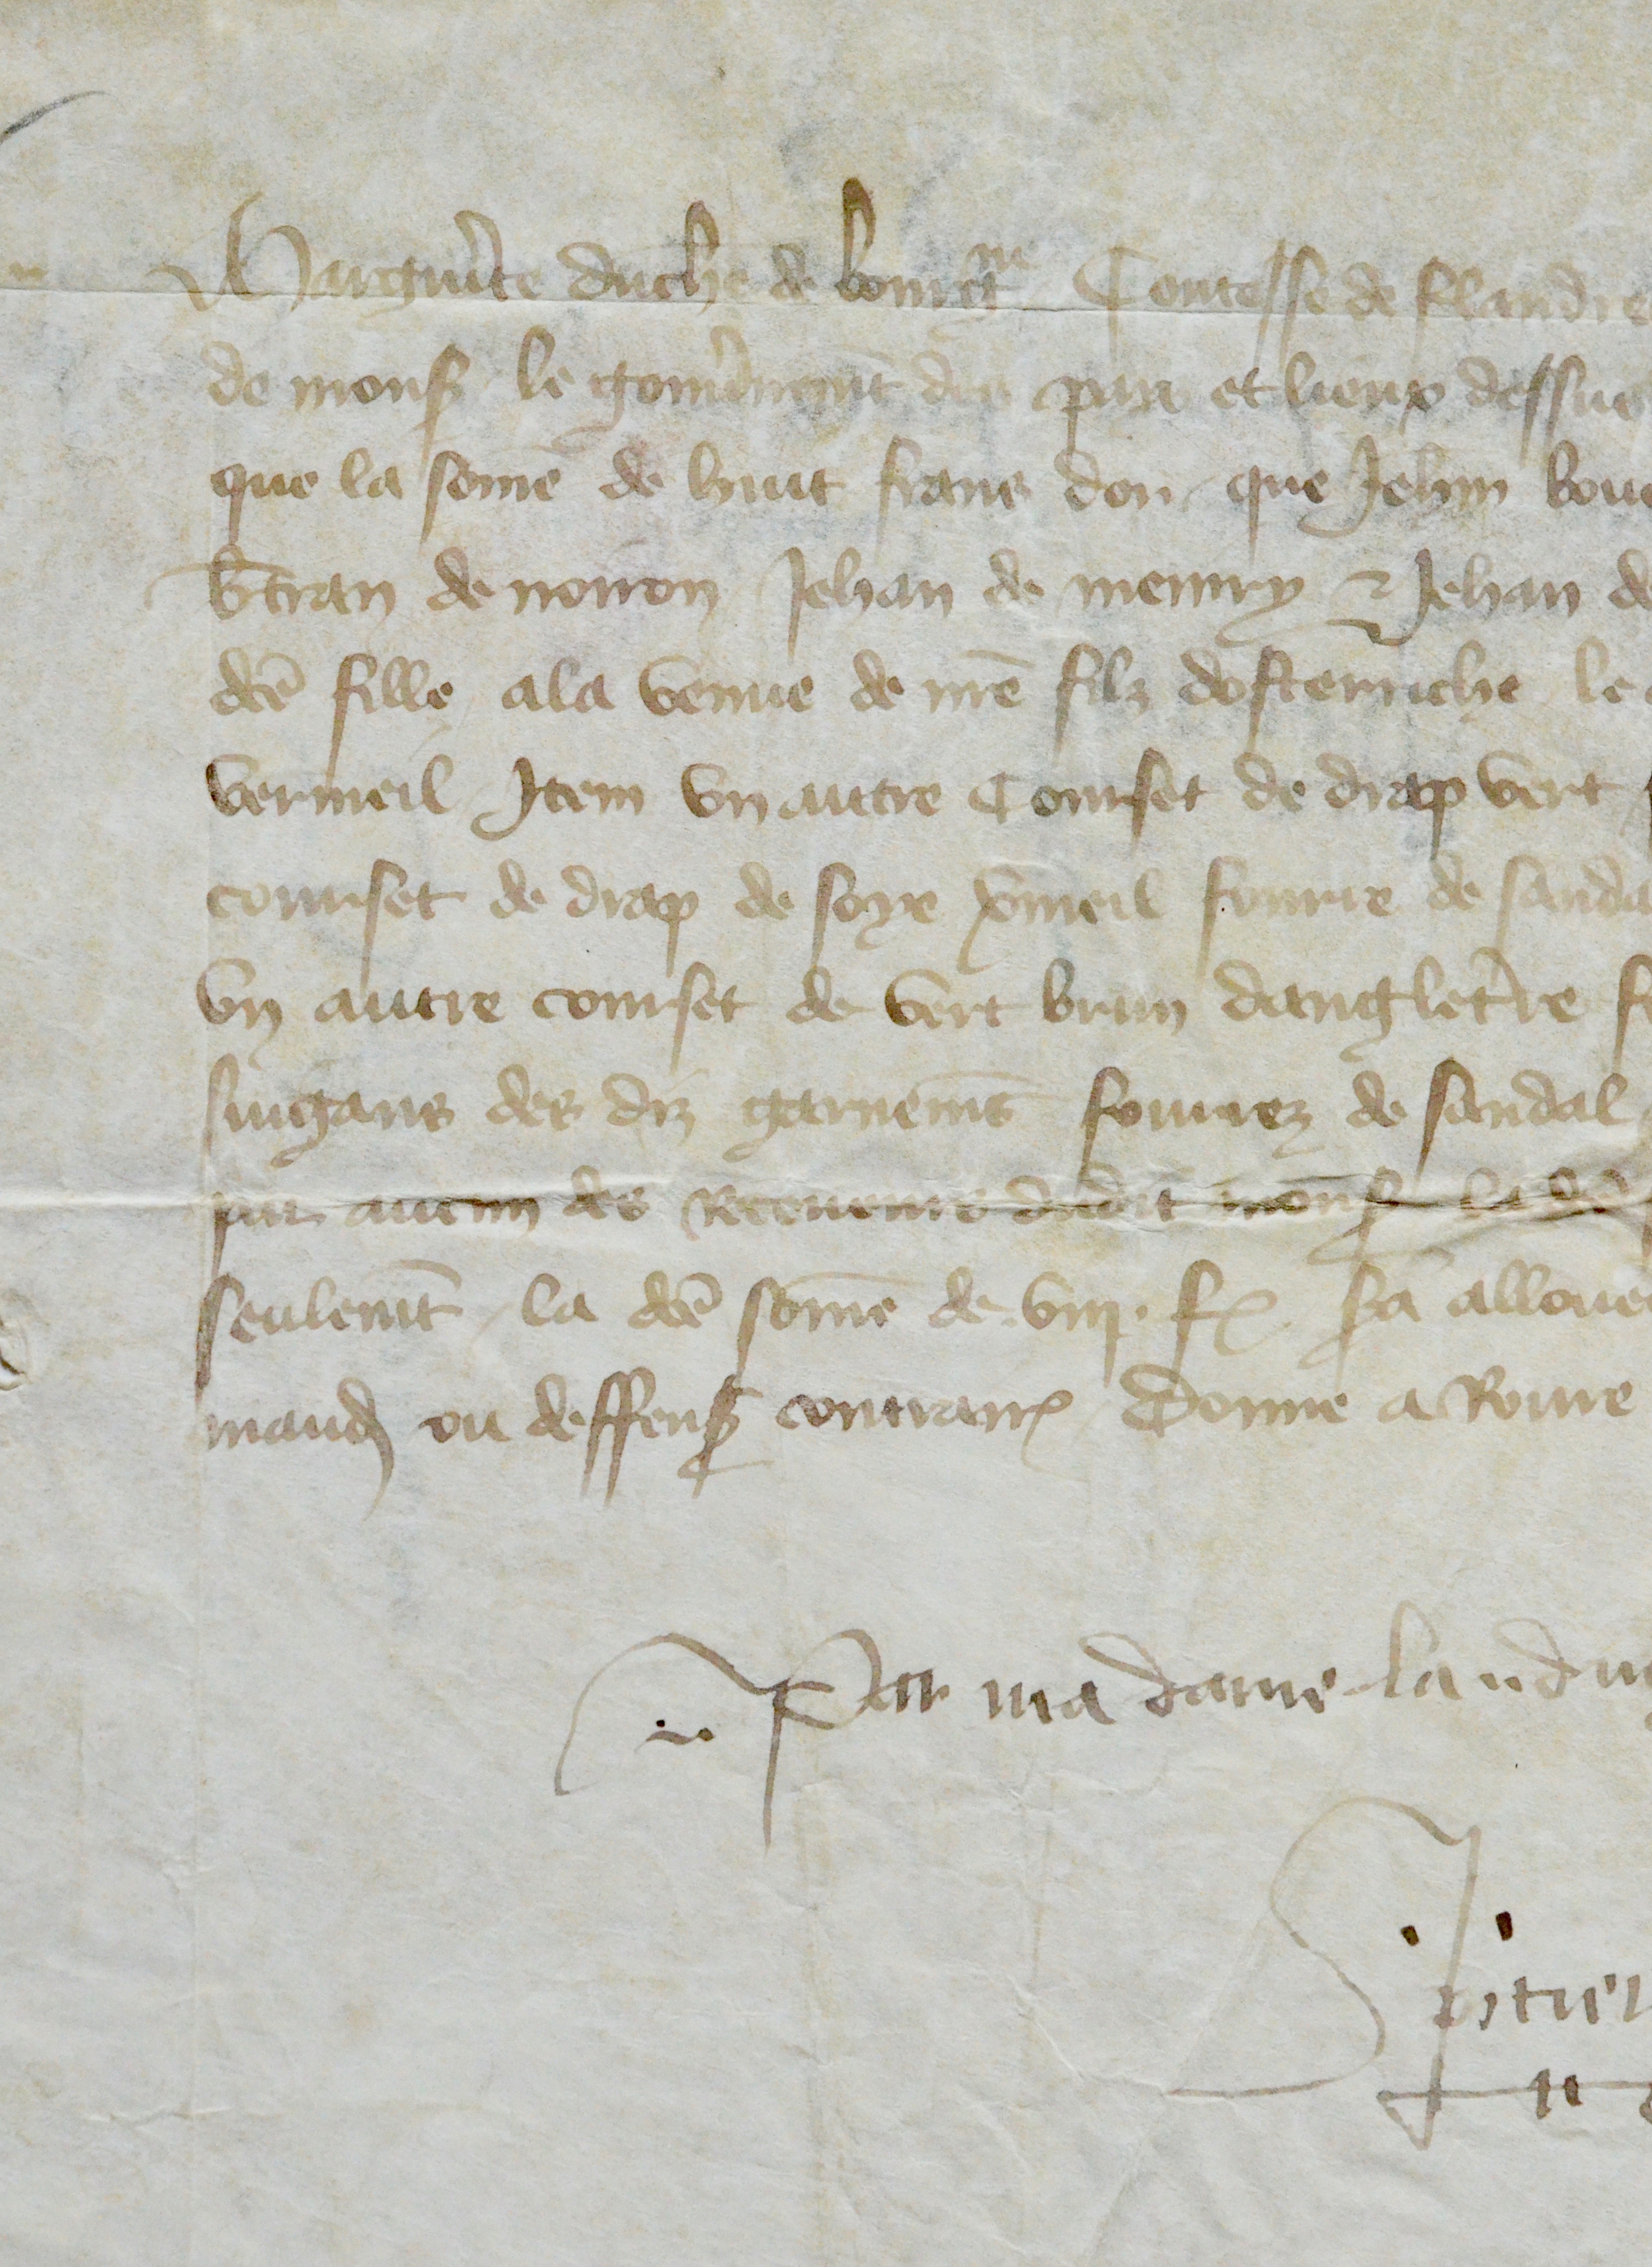 Marguite duch de bourgne Contesse de flandre
de mons le gouvnemt des pais et lieux dessus
que la some de huit frans dor que Jehan bou
btran de noiron Jehan de memry & Jehan de
dce fille ala venue de nre filz dosteriche le
vermeil Item vn autre Courset de drap vert
courset de drap de soye vmeil fourre de sanda
vn autre courset de vert brun dangletre f
des diz garnemes fourrez de sandal
par aucun des Receueurs dudit mons la dce
seulemt la dce some de viij. f sa alloue
mand ou deffens contrair Donne a Rouure
Par ma dame la du